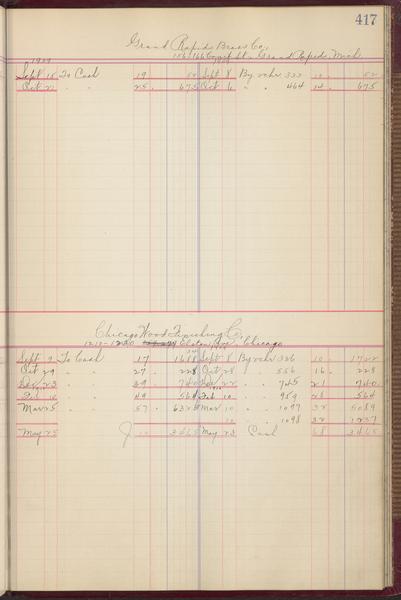 417
Grand Rapids Brass Co.
156-166 Court St. Grand Rapids Mich.
1909
Sept 15 To Cash 19 52 Sept 8 By vchr 333 10 52
Oct 21 " " 25 675 Oct 6 " " 464 14 675
Chicago Wood Finishing Co.
1210-1220 Elston Ave. Chicago
Sept 9 To Cash 17 1688 Sept 8 By vchr 326 10 1722
Oct 29 " " 27 228 Oct 28 " " 556 16 228
Dec 23 " " 39 740 Dec 22 " " 745 21 740
Feb 16 " " 49 564 Feb 10 " " 959 28 564
Mar 25 " " 57 Mar 10 " " 1097 32 5089
10 " " 1098 32 1237
May 23 J 2465 May 23 Cash 68 2465